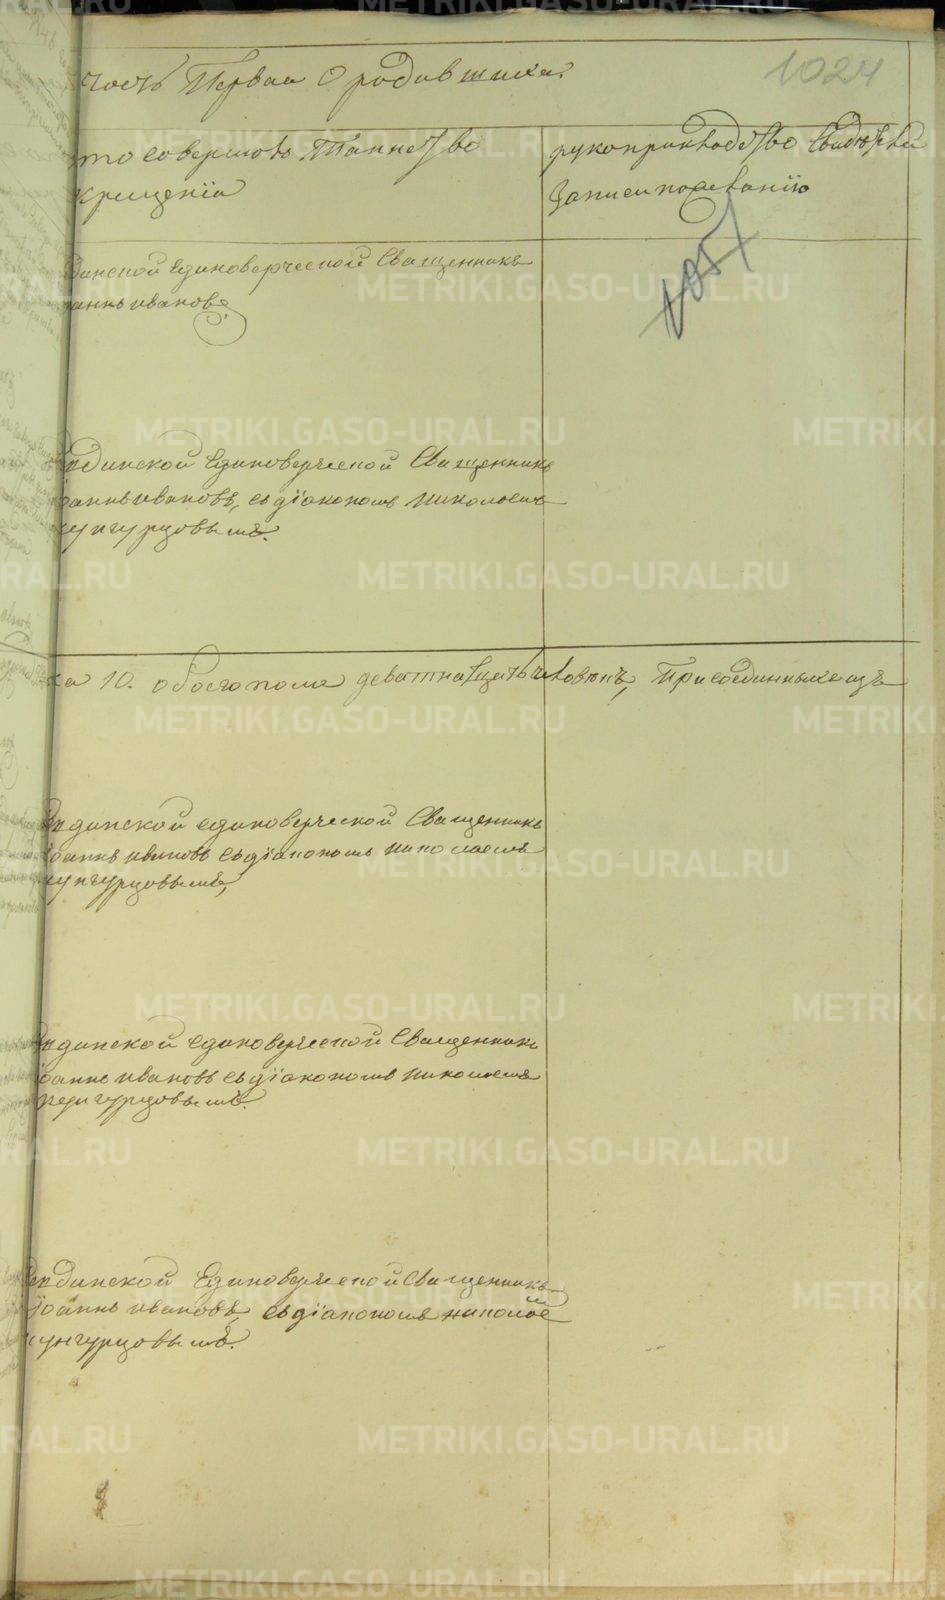 часть Первая О родившихся.
1024
кто совершалъ Таинство
крещенія
рукоприкладство Свидѣтелей
Записи по желанію
1057
Единоверческой Священникъ
Іоаннъ Ивановъ
Единоверческой Священникъ
Іоаннъ Ивановъ, съ діакономъ Николаемъ
Кунгурцовымъ.
10. обоего пола девятнатцать человѣкъ, Присоединенныхъ изъ
единоверческой Священникъ
Іоаннъ Ивановъ съ діакономъ Николаемъ
Кунгурцовымъ,
единоверческой Священникъ
Іоаннъ Ивановъ съ діакономъ Николаемъ
Кунгурцовымъ.
Единоверческой Священникъ
Іоаннъ Ивановъ, съ діакономъ Николае
Кунгурцовымъ.
METRIKI.GASO-URAL.RU